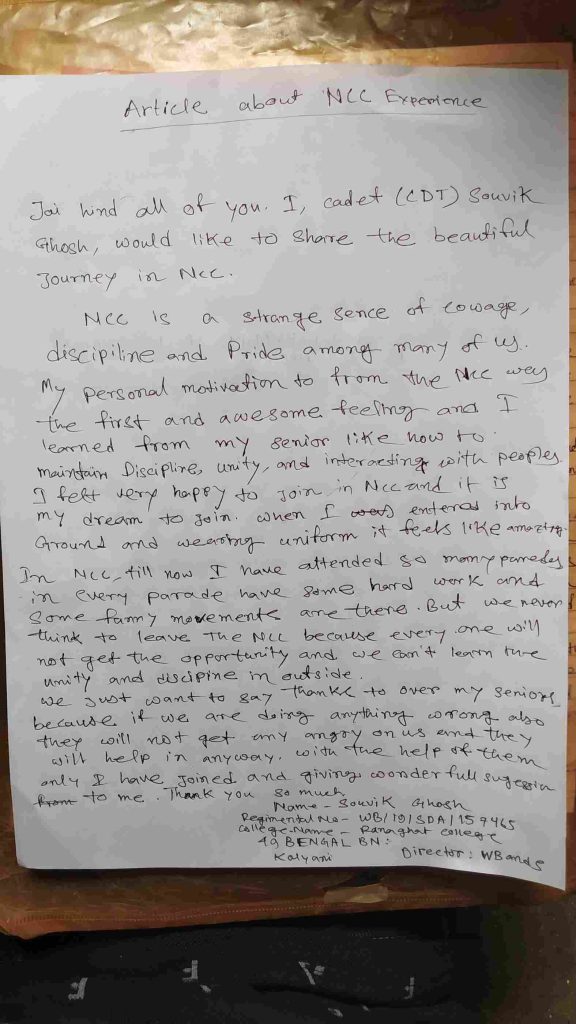 Article about NCC Experience
Jai hind all of you. I, cadet (CDT) Souvik
Ghosh, would like to share the beautiful
Journey in NCC.
NCC is a strange sence of cowage,
discipiline and Pride among many of us.
My personal motivation to from the NCC way
the first and awesome feeling and I
learned from my senior like how to
maintain Discipline, unity, and interacting with peoples.
I felt very happy to join in NCC and it is
my dream to join. when I was entered into
Ground and wearing uniform it feels like amazing.
In NCC, till now I have attended so many paredes
in every parade have some hard work and
some fanny movements are there. But we never
think to leave the NCC because every one will
not get the opportunity and we can't learn the
unity and discipine in outside.
we just want to say thankk to over my seniors
because if we are doing anything wrong also
they will not get any angry on us and they
will help in anyway. with the help of them
only I have joined and giving wonder full sugession
from to me. Thank you so much
Name - Souvik Ghosh
Regimental No - WB/19/SDA/159465
College-Name - Ranaghat college
49 BENGAL BN:
Kalyani Director: WB and S